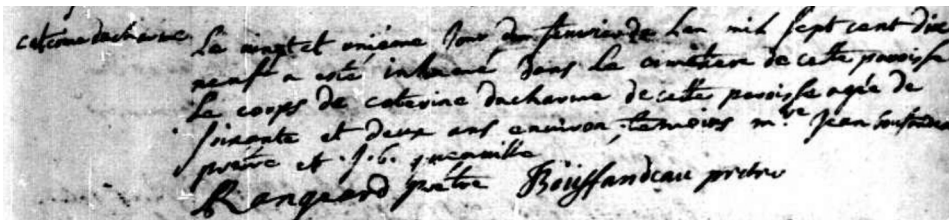 caterine ducharme
Le vingt et unieme Jour du Janvier de Lan mil sept cent dix
neuf a esté inhumé dans Le cimetiere de cette paroisse
Le corps de caterine ducharme de cette paroisse agée de
soixante et deux ans environ, temoins mre Jean bouffandeau
prêtre et J. b. quenville
Ranguard prêtre Boüffandeau prêtre